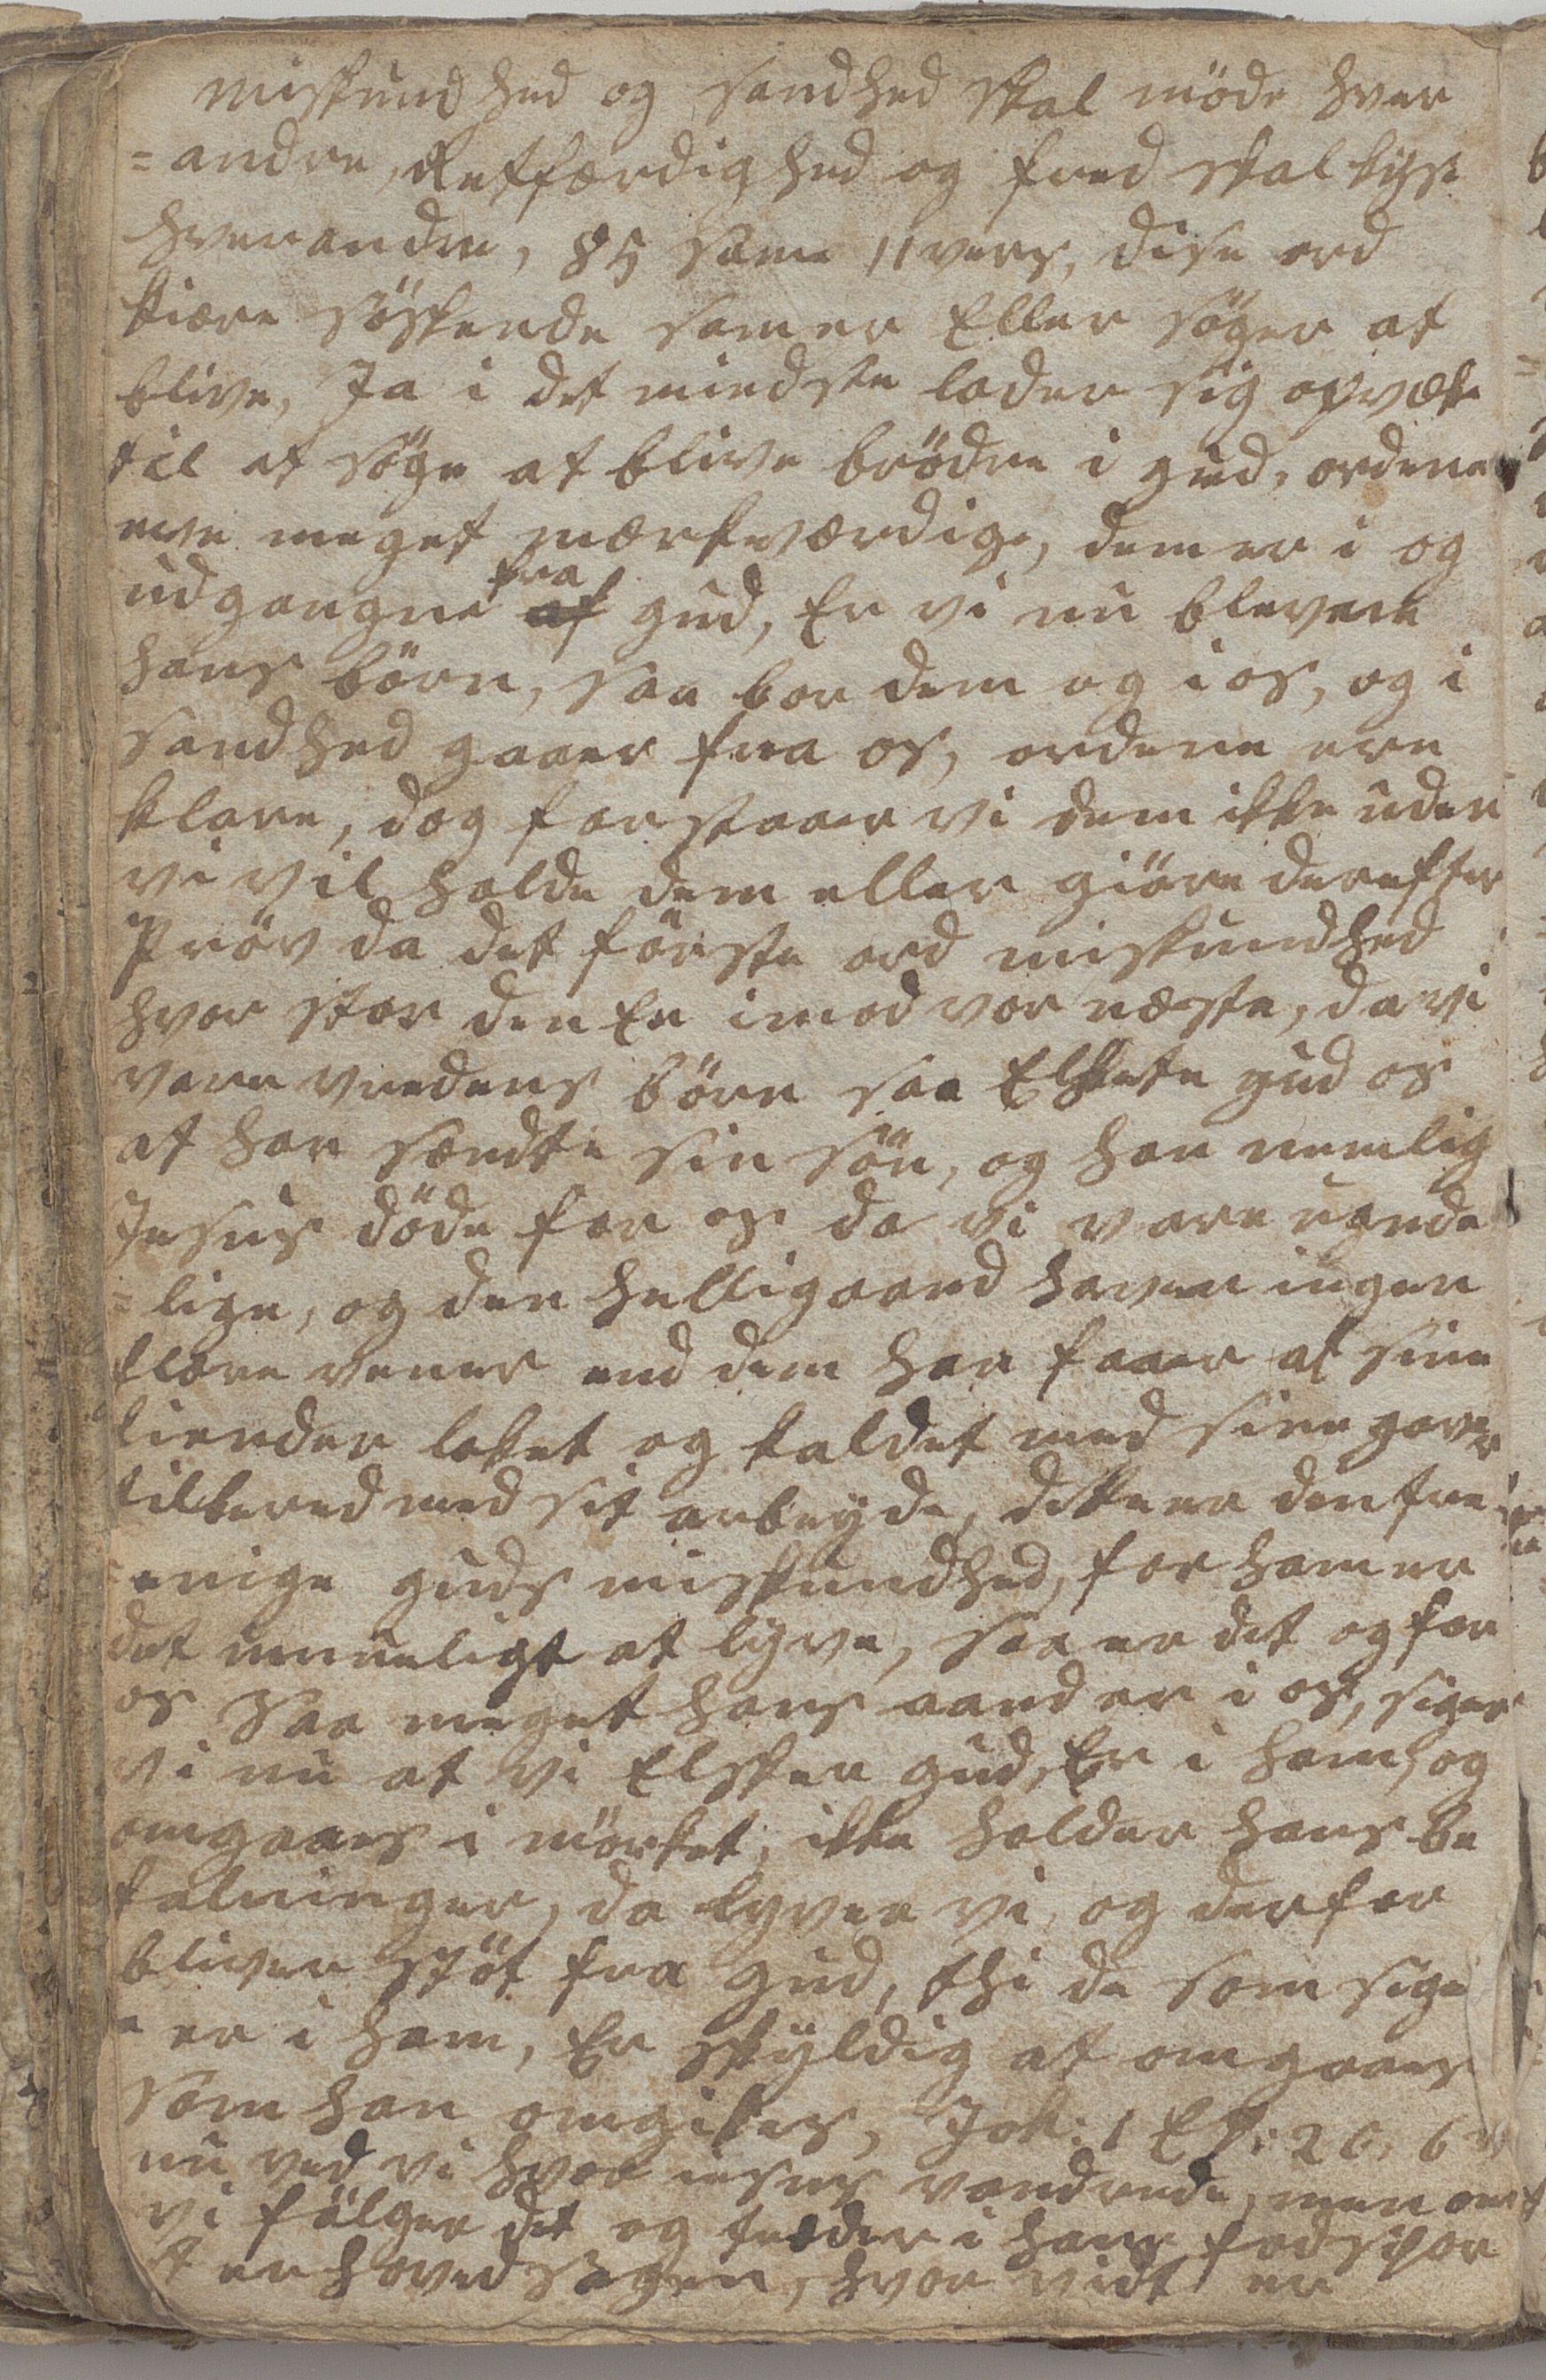 miskundhed og sandhed skal möde hver
=andre, Retfærdighed og fred skal kyse
hverandre, 85 Same 11 vers, dise ord
kiære söskende som er Eller söger at
blive, Ja i det mindste lader sig opvæke
til at söge at blive brödre i gud, ordene
ere meget mærkværdige, dem er i og
udgangne fra gud, Er vi nu blevene
hans börn, saa bor dem og i os, og i
sandhed gaaer fra os, ordene ere
klare, dog forstaaer vi dem ikke uden
vi vil holde dem eller giöre derefter
Pröv da det förste ord miskundhed
hvor stor den Er imod vor næste, da vi
vare vredens börn saa Elskete gud os
at han sændte sin sön, og han nemlig
Jesus döde for os da vi vare ugude
=lige, og den helligaand haver ingen
flere vener end dem han faaer af sine
fiender loket og kaldet med sine gaver
tilbered med sit arbeyde, dette er den tre
=enige guds miskundhed, for ham er
det umueligt at lyve, saa er det og for
os Saa meget hans aand er i os, siger
vi nu at vi Elsker gud, Er i ham, og
omgaaes i mörket, ikke holder hans be
falninger, da lyver vi, og derfor
bliver stöt fra gud, thi de som sige
er i ham, Er skyldig at omgaaes
som han omgikes, Joh: 1 Ep: 2 C, 6 v
nu ved vi hvor iesus vandrede, men om
vi fölger det og træder i hans fodspor
er hovedsagen, hvor vidt er